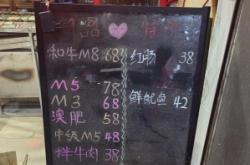 品
和牛M8 68
M5 78
M3 68
澳肥 58
中式M5 48
拌牛肉 38
红肠 38
鲜鱿鱼 42